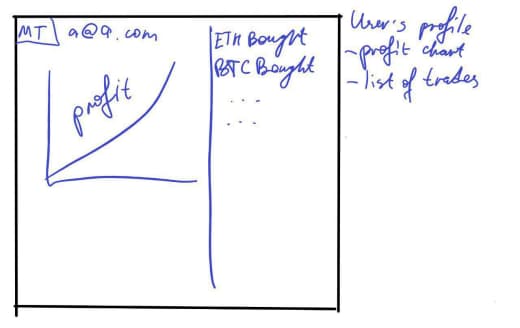 MT a@a.com
profit
ETH Bought
BTC Bought
...
...
User's profile
- profit chart
- list of trades